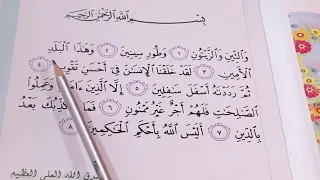 بِسْمِ ٱللَّهِ ٱلرَّحْمَٰنِ ٱلرَّحِيمِ
وَٱلتِّينِ وَٱلزَّيْتُونِ ١ وَطُورِ سِينِينَ ٢ وَهَٰذَا ٱلْبَلَدِ
ٱلْأَمِينِ ٣ لَقَدْ خَلَقْنَا ٱلْإِنسَٰنَ فِىٓ أَحْسَنِ تَقْوِيمٍ ٤
ثُمَّ رَدَدْنَٰهُ أَسْفَلَ سَٰفِلِينَ ٥ إِلَّا ٱلَّذِينَ ءَامَنُوا۟ وَعَمِلُوا۟
ٱلصَّٰلِحَٰتِ فَلَهُمْ أَجْرٌ غَيْرُ مَمْنُونٍ ٦ فَمَا يُكَذِّبُكَ بَعْدُ
بِٱلدِّينِ ٧ أَلَيْسَ ٱللَّهُ بِأَحْكَمِ ٱلْحَٰكِمِينَ ٨
الله العلي العظيم